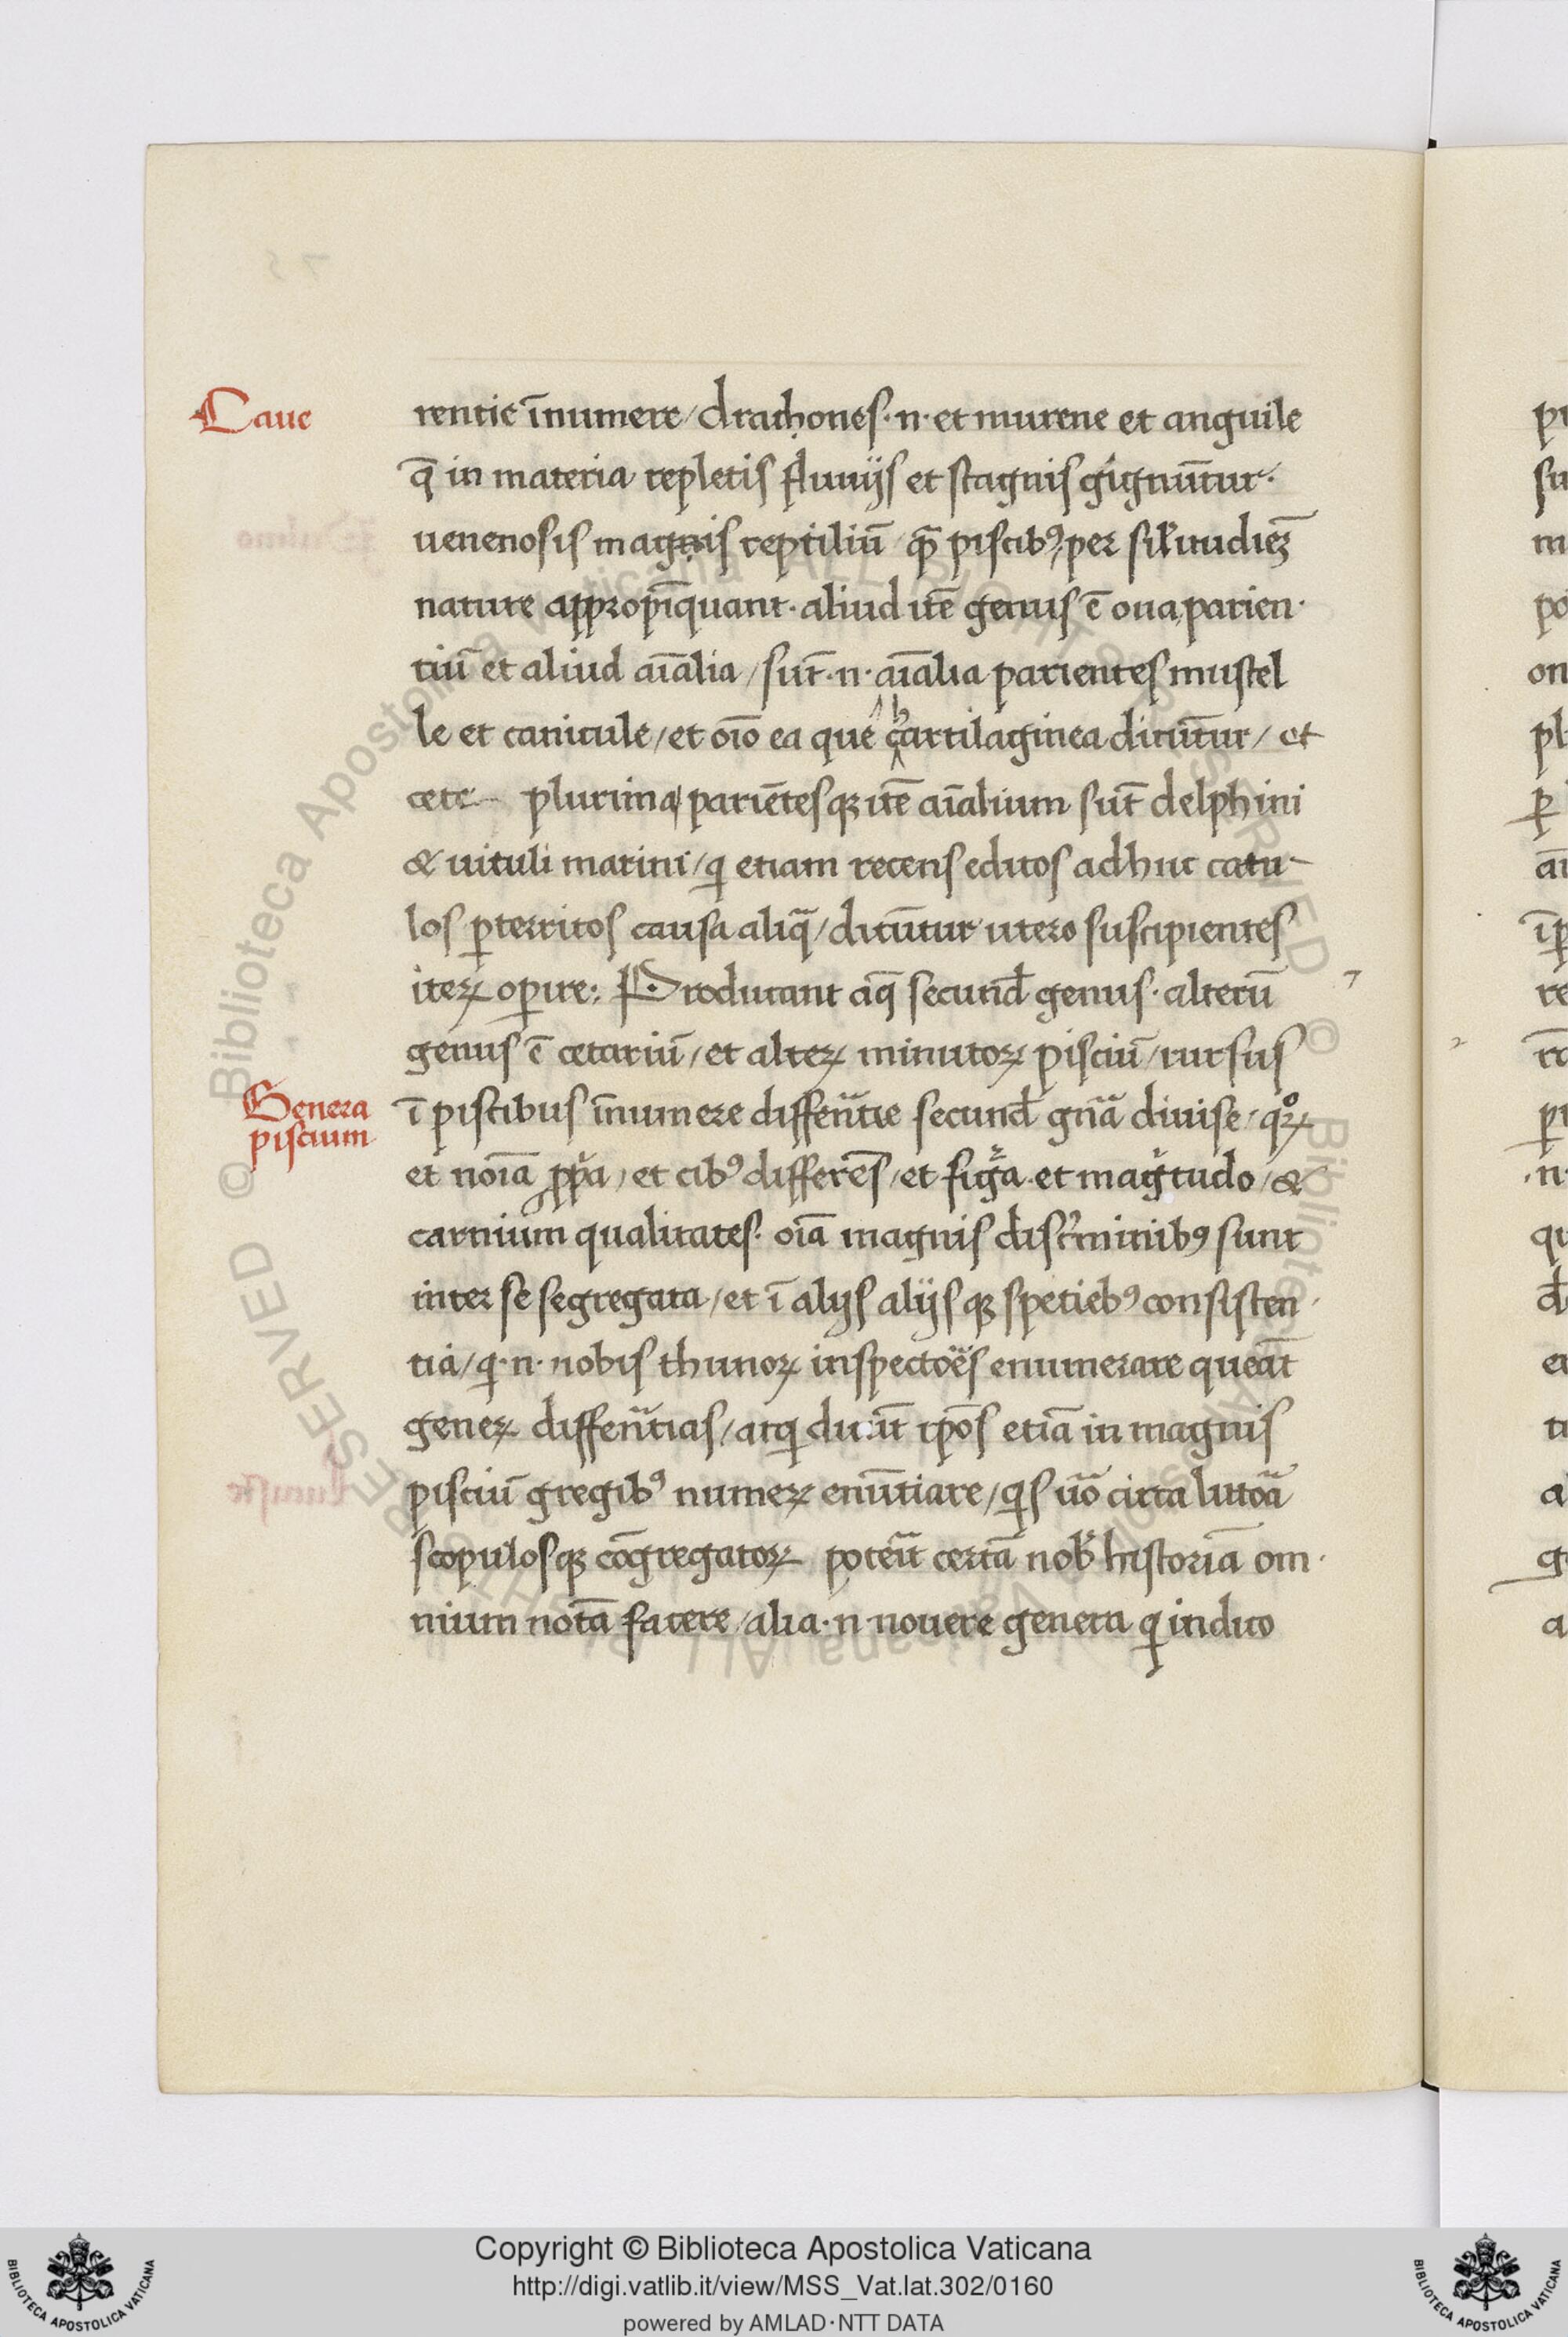 Caue
rentie īnumere / drachones · n · et murene et anguile
q̄ in materia repletis fluuijs et stagnis gignūtur ·
uenenosis magnis reptiliū / qͣ piscibꝰ / per sil̓itudiēꝫ
nature appropīquant · aliud itē genus ē oua parien ·
tiū et aliud aīalia / sūt · n · aīalia parientes mustel
le et canicule / et oīo ea que cartilaginea dicūtur / et
cete plurima pariētesqꝫ itē aīalium sūt delphini
& uituli marini / qͥ etiam recens editos adhuc catu-
los ꝑterritos causa aliqͣ / dicūtur utero suscipientes
iteꝝ oꝑire : Producant aq̄ secund̄ genus · alterū
genus ē cetariū / et alteꝝ minutoꝝ pisciū / rursus
Genera
piscium
ī piscibus īnumere differn̄tie secund̄ gn̄a diuise / qͦꝝ
et noīa ꝓpͥa / et cibꝰ differēs / et figͣa · et magͥtudo / &
carnium qualitates · oīa magnis discͥminibꝰ sunt
inter se segregata / et ī alijs alijsqꝫ spetiebꝰ consisten ·
tia / qͥ · n · nobis thunoꝝ inspectoēs enumerare queāt
geneꝝ differn̄tias / atqͥ ip̄os etiā in magnis
pisciū gregibꝰ numeꝝ enūtiare / qͥs ūo circa littoā
scopulosqꝫ cōgregatoꝝ poteūt certā nob̓ historiā om ·
nium notā facere / alia · n · nouere genera qͥ indico
Copyright © Biblioteca Apostolica Vaticana
http://digi.vatlib.it/view/MSS_Vat.lat.302/0160
powered by AMLAD·NTT DATA
BIBLIOTECA APOSTOLICA VATICANA
BIBLIOTECA APOSTOLICA VATICANA